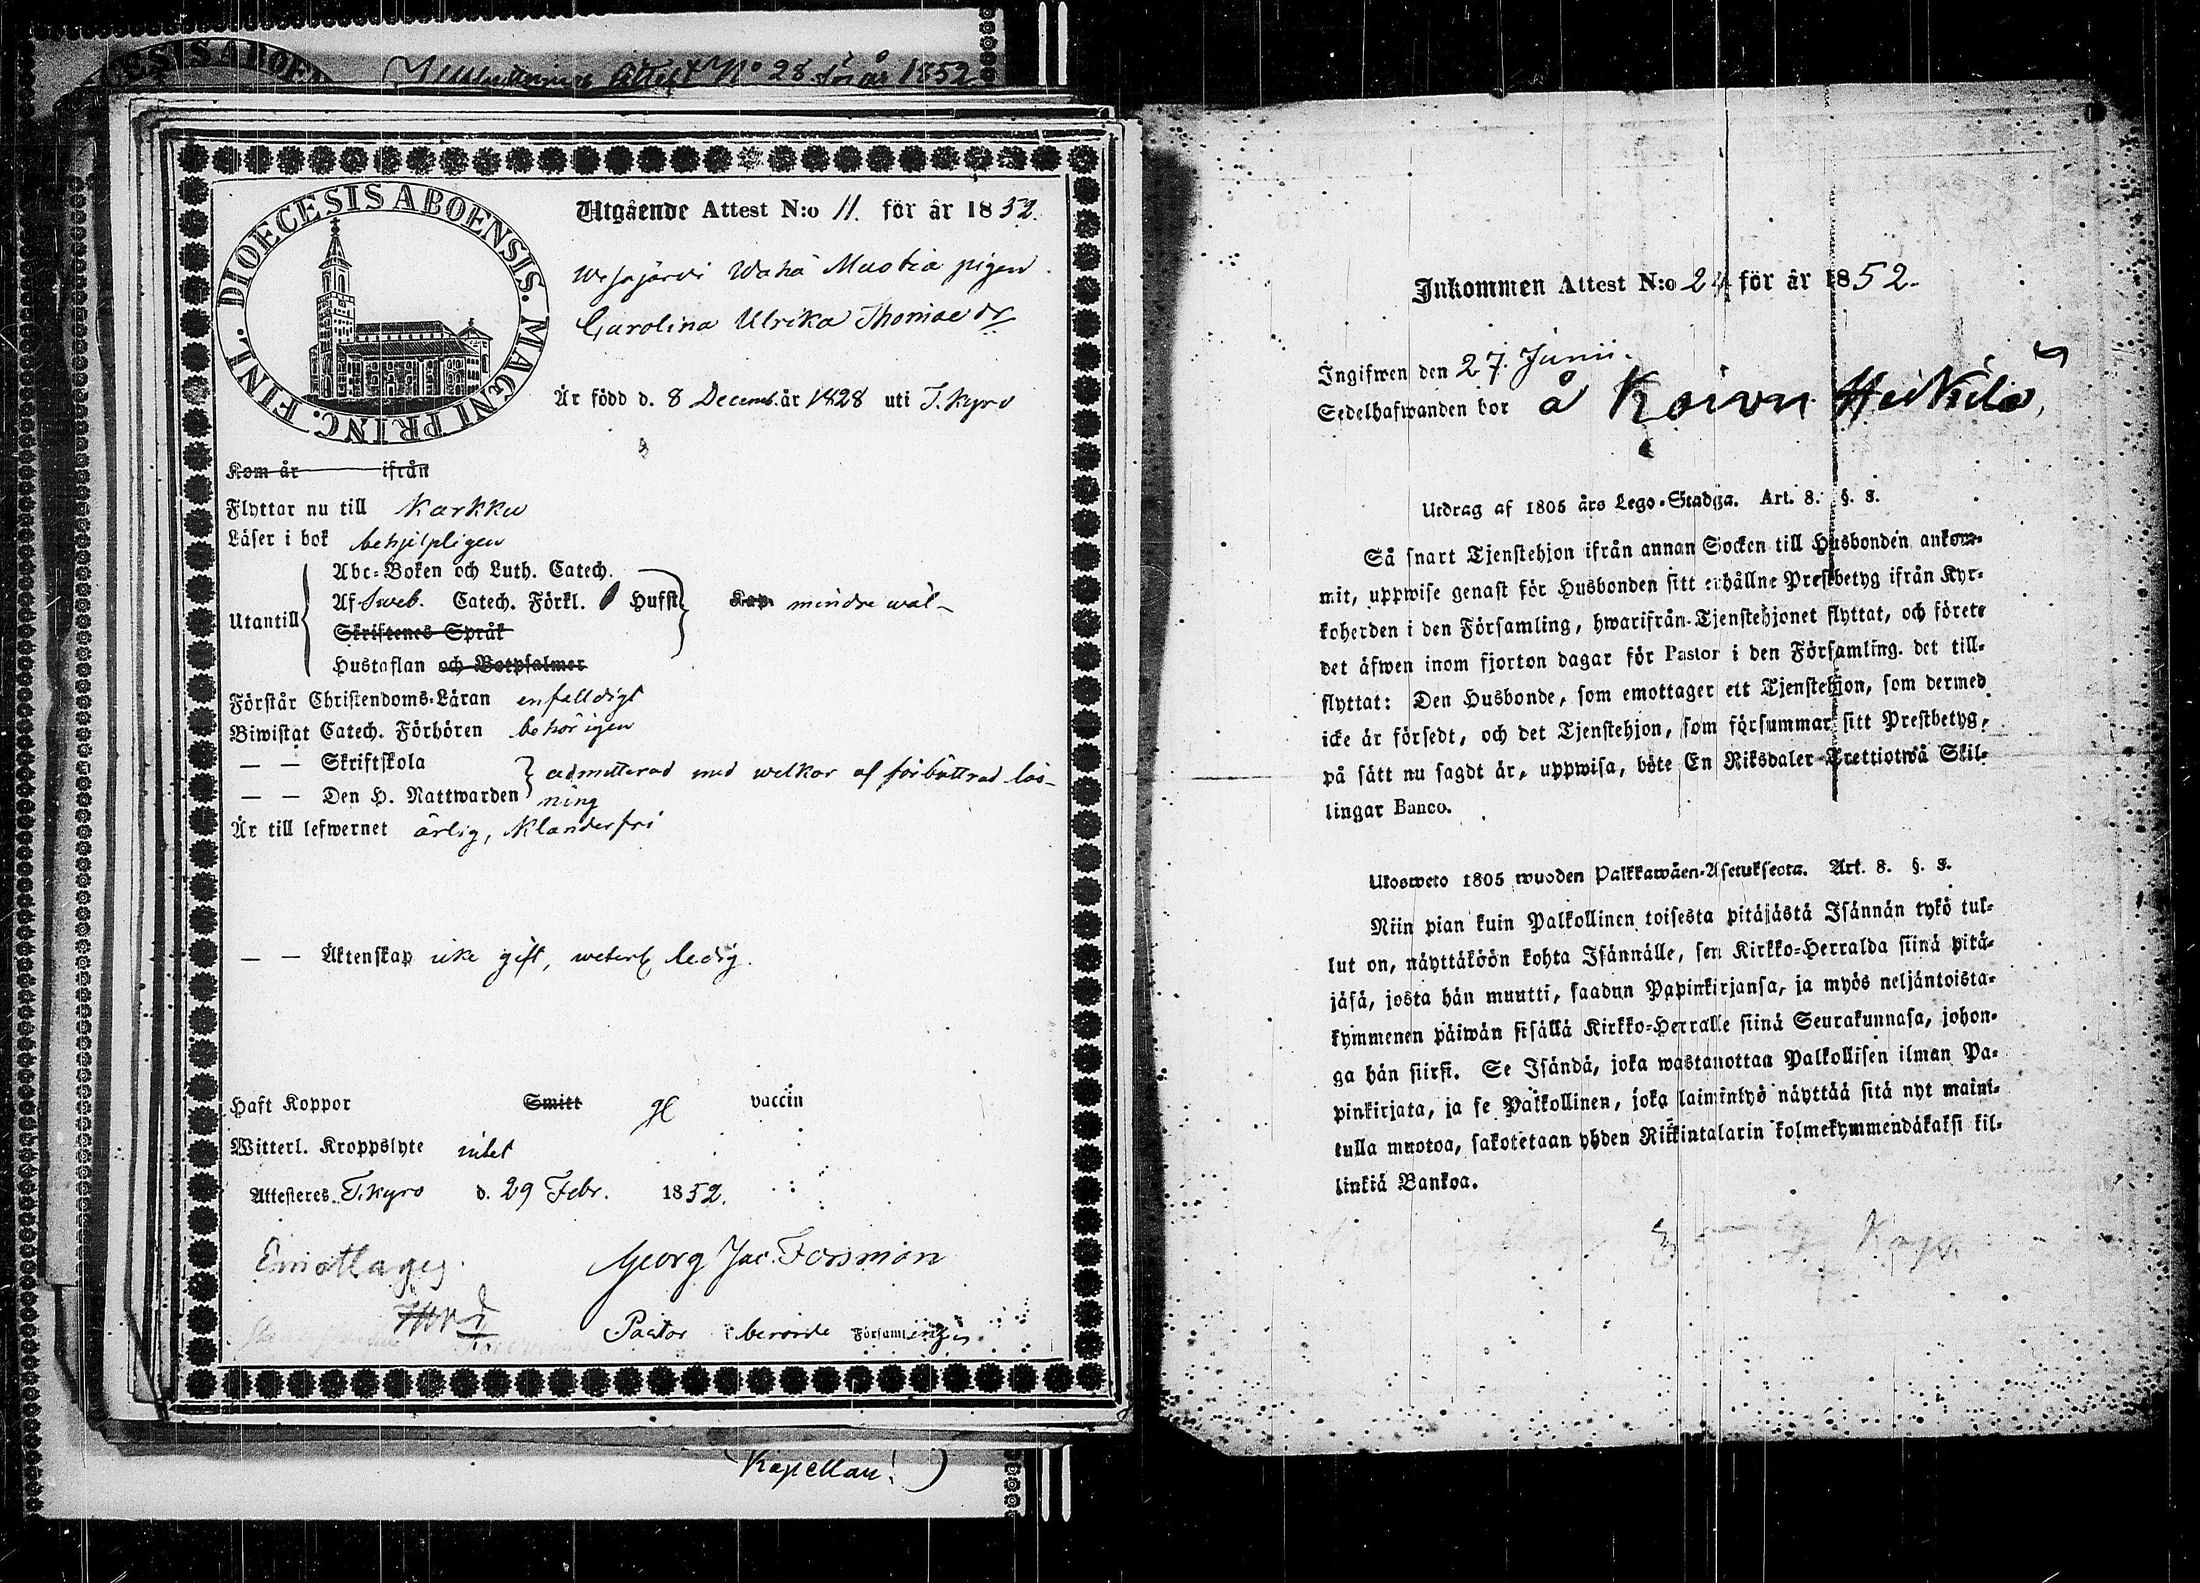 Attest No 28 för år 1852
DIOECESIS ABOENSIS. MAGNI PRINC. FINL.
Utgående Attest N:o 11. för år 1852.
Wesajärvi Wähä Muotia pigan
Carolina Ulrika Thomae dr
Är född d. 8 Decemb. år 1828 uti T. Kyro
Kom år ifrån
Flyttar nu till Karkku
Läser i bok behjelpligen
Abc-Boken och Luth. Catech.
Utantill Af Sweb. Catech. Förkl. Husst. Kap. mindre wäl
Skriftenes Språk
Hustaflan och Botpsalmer
Förstår Christendoms-Läran enfalldigt
Biwistat Catech. Förhören behörigen
— — Skriftskola
— — Den H. Nattwarden admitterad med welkor af förbättrad läs-
ning
Är till lefwernet ärlig, klanderfri
— — Äktenskap icke gift, ledig.
Haft Koppor Smitt vaccin
Witterl. Kroppslyte intet
Attesteres T. Kyro d. 29 Febr. 1852.
Emottages
Georg Jac. Forsman
Pastor i berörde Församlingen
Kapellan!)
Inkommen Attest N:o 24 för år 1852.
Ingifwen den 27. Junii.
Sedelhafwanden bor å Koivu Heikilä
Utdrag af 1805 års Lego-Stadga. Art. 8. §. 8.
Så snart Tjenstehjon ifrån annan Socken till Husbonden ankom-
mit, uppwise genast för Husbonden sitt erhållne Prestbetyg ifrån Kyr-
koherden i den Församling, hwarifrån Tjenstehjonet flyttat, och förete
det äfwen inom fjorton dagar för Pastor i den Församling det till-
flyttat: Den Husbonde, som emottager ett Tjenstehjon, som dermed
icke är försedt, och det Tjenstehjon, som försummar sitt Prestbetyg,
på sätt nu sagdt är, uppwisa, böte En Riksdaler Trettiotwå Skil-
lingar Banco.
Ulosweto 1805 wuoden Palkkawäen-Asetuksesta. Art. 8. §. 8.
Niin pian kuin Palkollinen toisesta pitäjästä Isännän tykö tul-
lut on, näyttäköön kohta Isännälle, sen Kirkko-Herralda siinä pitä-
jäsä, josta hän muutti, saadun Papinkirjansa, ja myös neljäntoista-
kymmenen päiwän sisällä Kirkko-Herralle siinä Seurakunnasa, johon-
ga hän siirsi. Se Isändä, joka wastanottaa Palkollisen ilman Pa-
pinkirjata, ja se Palkollinen, joka laiminlyö näyttää sitä nyt maini-
tulla muotoa, sakotetaan yhden Riikintalarin kolmekymmendäkaksi kil-
linkiä Bankoa.